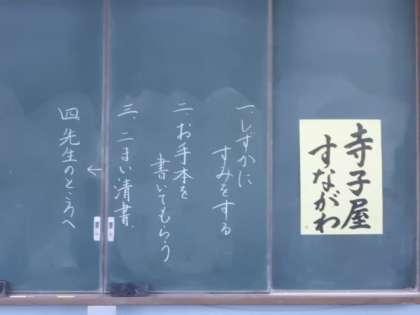 寺子屋
すながわ
一、しずかに
すみをする
二、お手本を
書いてもらう
三、二まい清書、
↓
四、先生のところへ